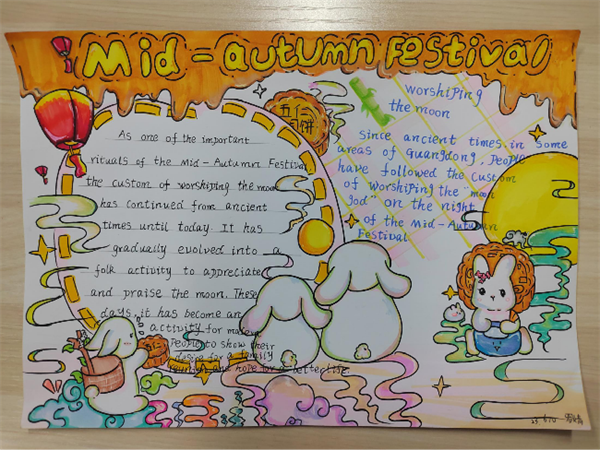 Mid-autumn Festival
As one of the important
rituals of the Mid-Autumn Festival
the custom of worshiping the moon
has continued from ancient
times until today. It has
gradually evolved into a
folk activity to appreciate
and praise the moon. These
days, it has become an
activity for
People to show their
desire for a family
reunion and hope for a better life.
五仁
月饼
worshiping
the moon
Since ancient times in some
areas of Guangdong, People
have followed the custom
of worshiping the "moon
god" on the night
of the Mid-Autumn
Festival